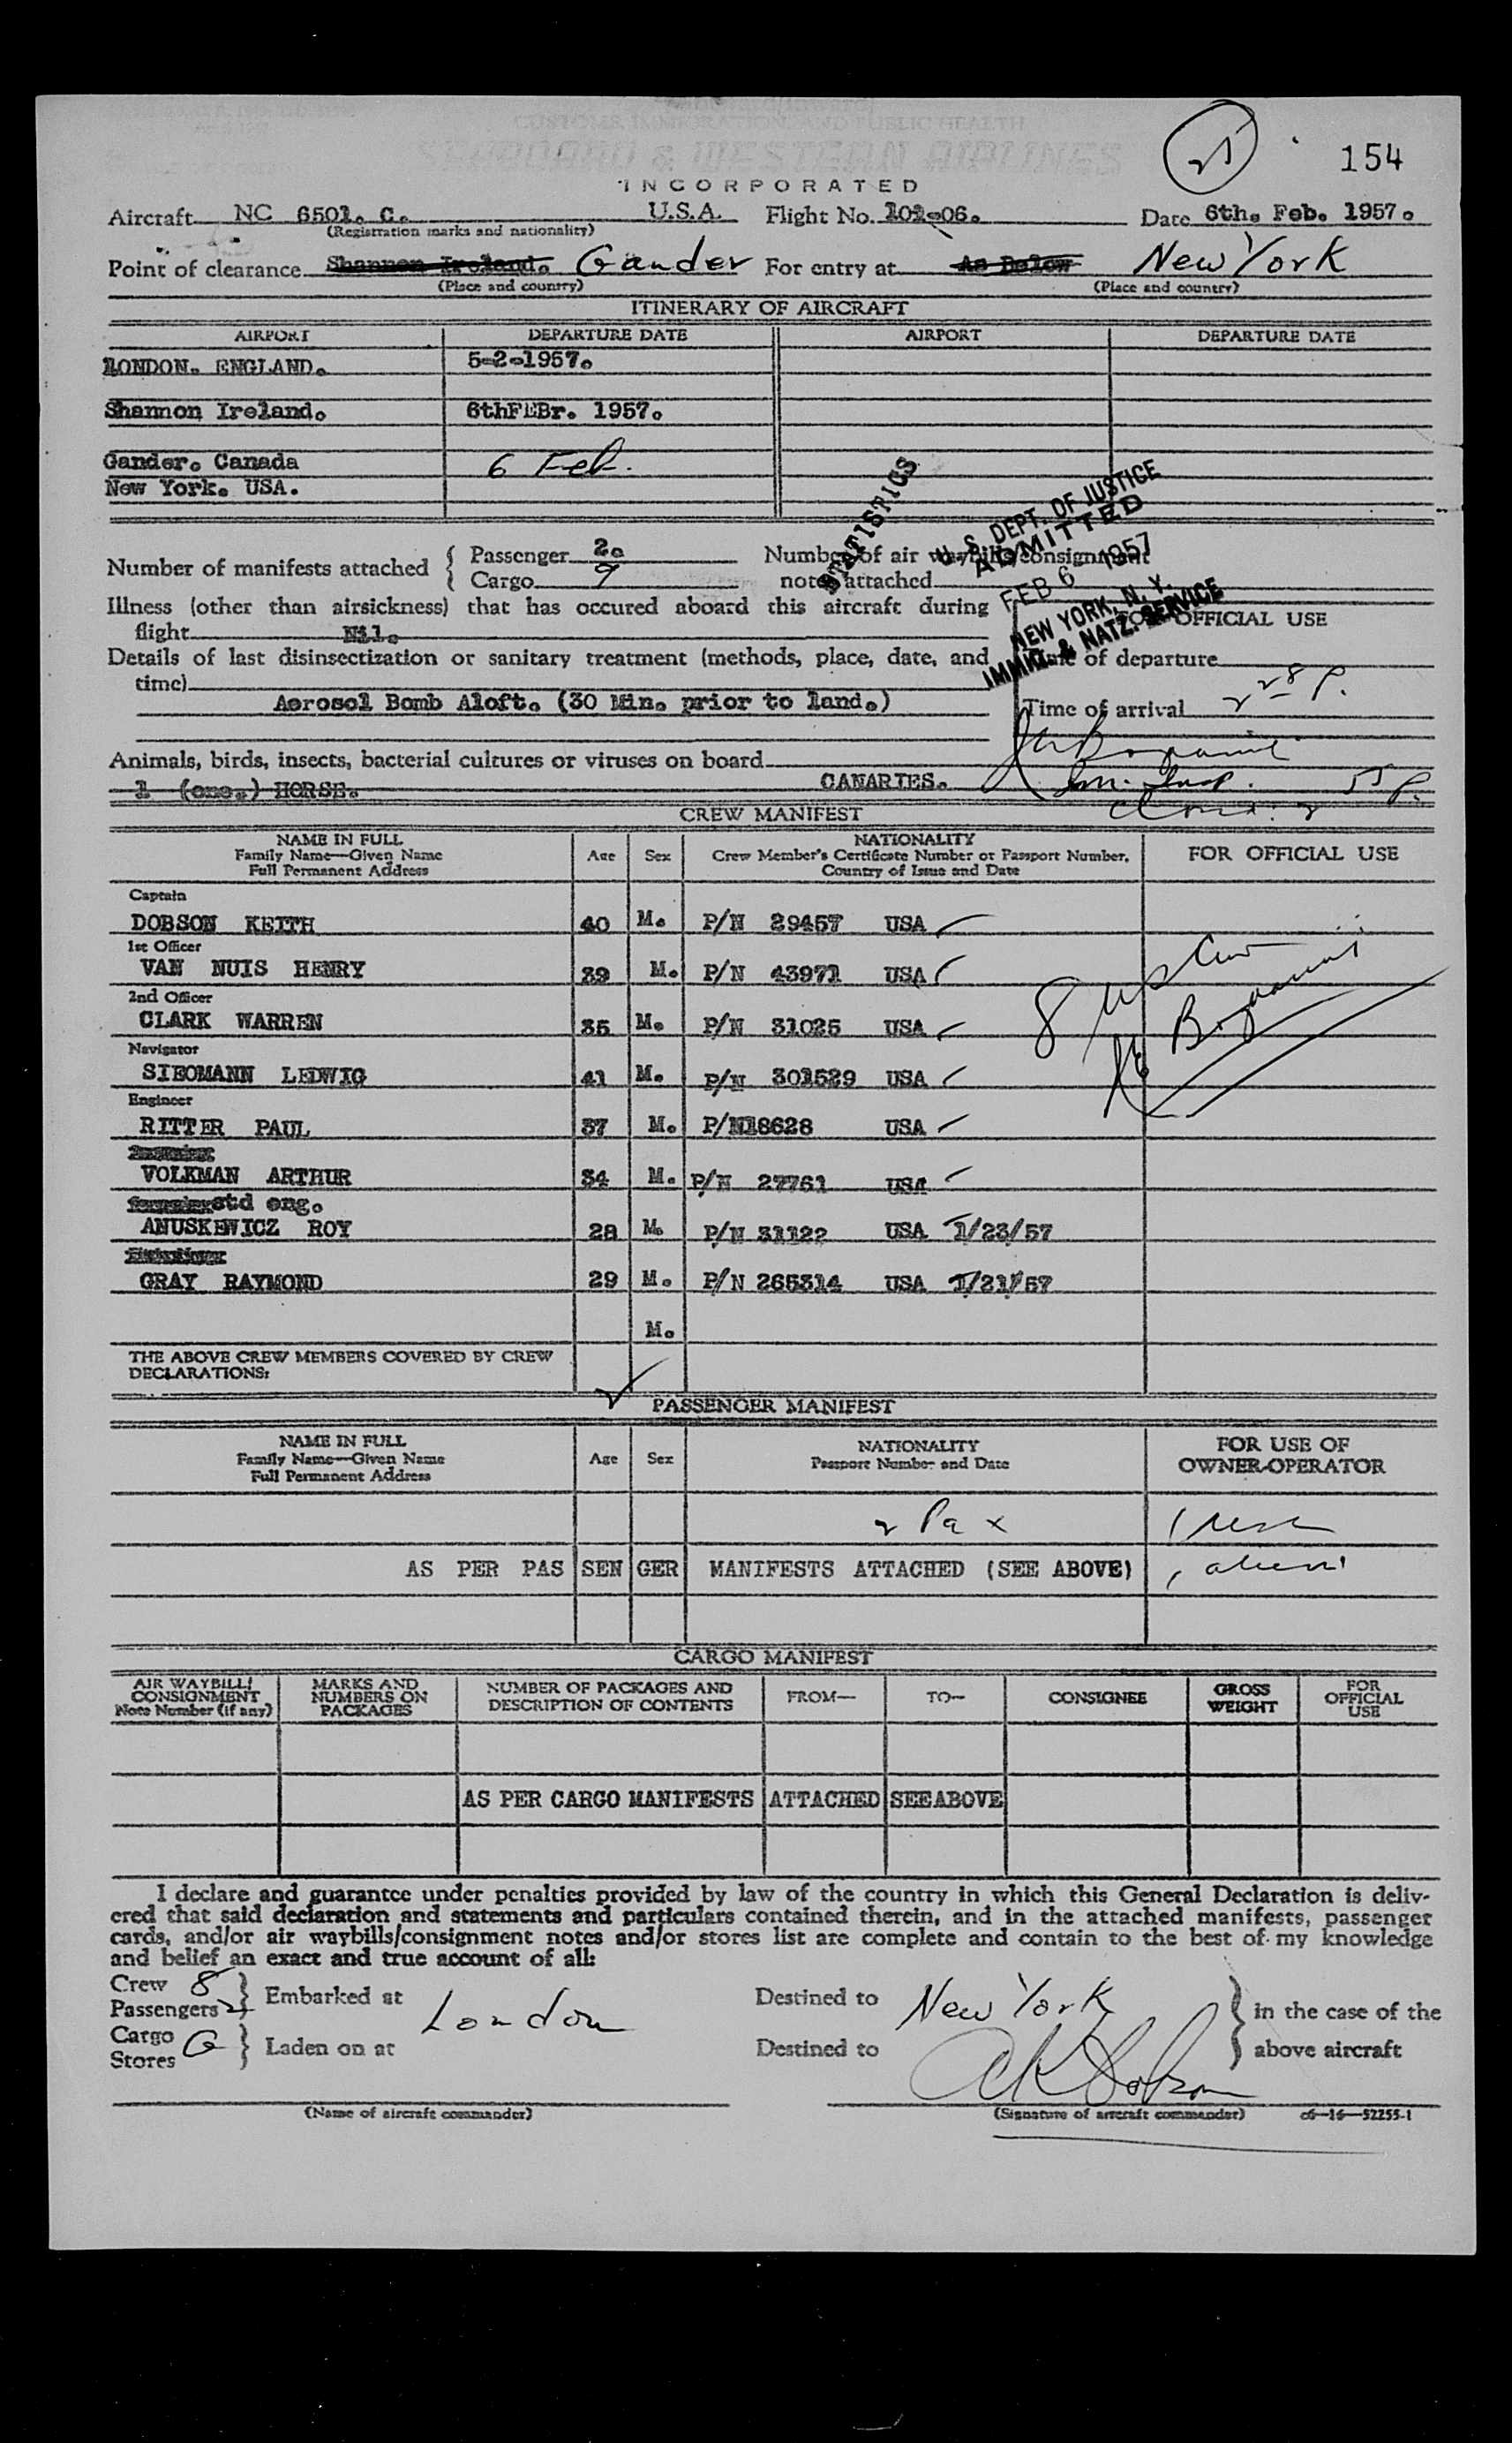 154
CUSTOMS, IMMIGRATION, AND PUBLIC HEALTH
SEABOARD & WESTERN AIRLINES
INCORPORATED
Aircraft NC 6501. C. U.S.A. Flight No. 101-06. Date 6th. Feb. 1957.
(Registration marks and nationality)
Point of clearance Shannon Ireland. Gander For entry at As Below New York
(Place and country) (Place and country)
ITINERARY OF AIRCRAFT
AIRPORT DEPARTURE DATE AIRPORT DEPARTURE DATE
LONDON. ENGLAND. 5-2-1957.
Shannon Ireland. 6thFEBr. 1957.
Gander. Canada 6 Feb.
New York. USA.
STATISTICS
U. S. DEPT. OF JUSTICE
ADMITTED
FEB 6 1957
NEW YORK, N. Y.
IMMIG. & NATZ. SERVICE
Number of manifests attached { Passenger 2.
Cargo 9
Number of air waybills/consignment
notes attached
Illness (other than airsickness) that has occured aboard this aircraft during
flight Nil.
FOR OFFICIAL USE
Details of last disinsectization or sanitary treatment (methods, place, date, and
time)
Time of departure
Aerosol Bomb Aloft. (30 Min. prior to land.)
Time of arrival 2 28 P.
Animals, birds, insects, bacterial cultures or viruses on board
1 (one.) HORSE. CANARIES.
CREW MANIFEST
NAME IN FULL
Family Name—Given Name
Full Permanent Address
Age Sex
NATIONALITY
Crew Member's Certificate Number or Passport Number,
Country of Issue and Date
FOR OFFICIAL USE
Captain
DOBSON KEITH 40 M. P/N 29457 USA
1st Officer
VAN NUIS HENRY 39 M. P/N 43971 USA
2nd Officer
CLARK WARREN 35 M. P/N 31025 USA
Navigator
SIEOMANN LEDWIG 41 M. P/N 301529 USA
Engineer
RITTER PAUL 37 M. P/N18628 USA
VOLKMAN ARTHUR 34 M. P/N 27761 USA
std eng.
ANUSKEWICZ ROY 28 M. P/N 31122 USA 1/23/57
GRAY RAYMOND 29 M. P/N 265314 USA 1/21/57
M.
8 us Crew
THE ABOVE CREW MEMBERS COVERED BY CREW
DECLARATIONS:
PASSENGER MANIFEST
NAME IN FULL
Family Name—Given Name
Full Permanent Address
Age Sex
NATIONALITY
Passport Number and Date
FOR USE OF
OWNER-OPERATOR
2 Pax
AS PER PAS SEN GER MANIFESTS ATTACHED (SEE ABOVE) 1 alien
CARGO MANIFEST
AIR WAYBILL/
CONSIGNMENT
Note Number (if any)
MARKS AND
NUMBERS ON
PACKAGES
NUMBER OF PACKAGES AND
DESCRIPTION OF CONTENTS
FROM— TO— CONSIGNEE
GROSS
WEIGHT
FOR
OFFICIAL
USE
AS PER CARGO MANIFESTS ATTACHED SEE ABOVE
I declare and guarantee under penalties provided by law of the country in which this General Declaration is deliv-
ered that said declaration and statements and particulars contained therein, and in the attached manifests, passenger
cards, and/or air waybills/consignment notes and/or stores list are complete and contain to the best of my knowledge
and belief an exact and true account of all:
Crew 8
Passengers 2 } Embarked at London Destined to New York } in the case of the
Cargo
Stores } Laden on at Destined to above aircraft
(Name of aircraft commander) (Signature of aircraft commander) c6—16—52255-1